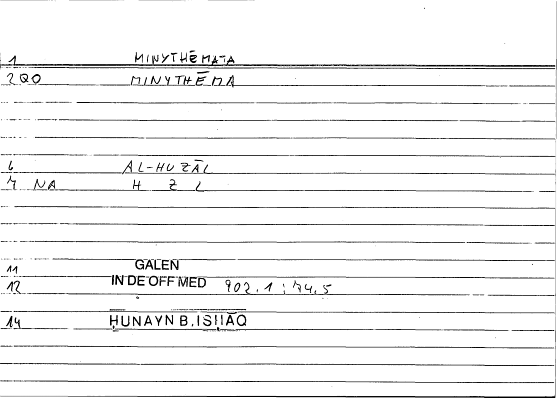 1 MINYTHĒMATA
2 QO MINYTHĒMA
6 AL-HUZĀL
7 NA H Z L
11 GALEN
12 IN DE OFF MED 902.1 ; 74.5
14 ḤUNAYN B. ISḤĀQ